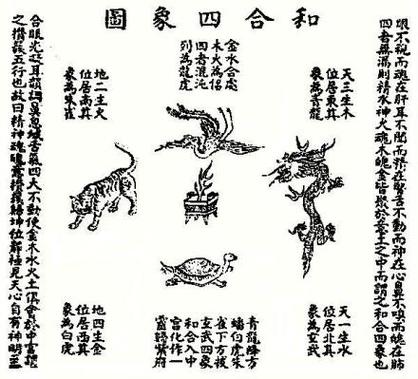 和合四象圖
眼不視而魂在肝耳不聞而精在腎舌不動而神在心鼻不嗅而魄在肺
四者無漏則精水神火魂木魄金皆聚於意土之中而謂之和合四象也
天三生木
位居東真
象為青龍
金水合處
木火為侶
四者混沌
列為龍虎
地二生火
位居南真
象為朱雀
天一生水
位居北真
象為玄武
青龍降方
蟠白虎朱
雀下方
玄武四象
和合入中
宮化作一
靈歸紫府
地四生金
位居西真
象為白虎
合眼光凝耳韻調鼻息緘舌氣四大不動使金木水火土俱會於中宮謂
之攢簇五行也故曰精神魂魄意攢簇歸坤位靜極見天心自有神明至